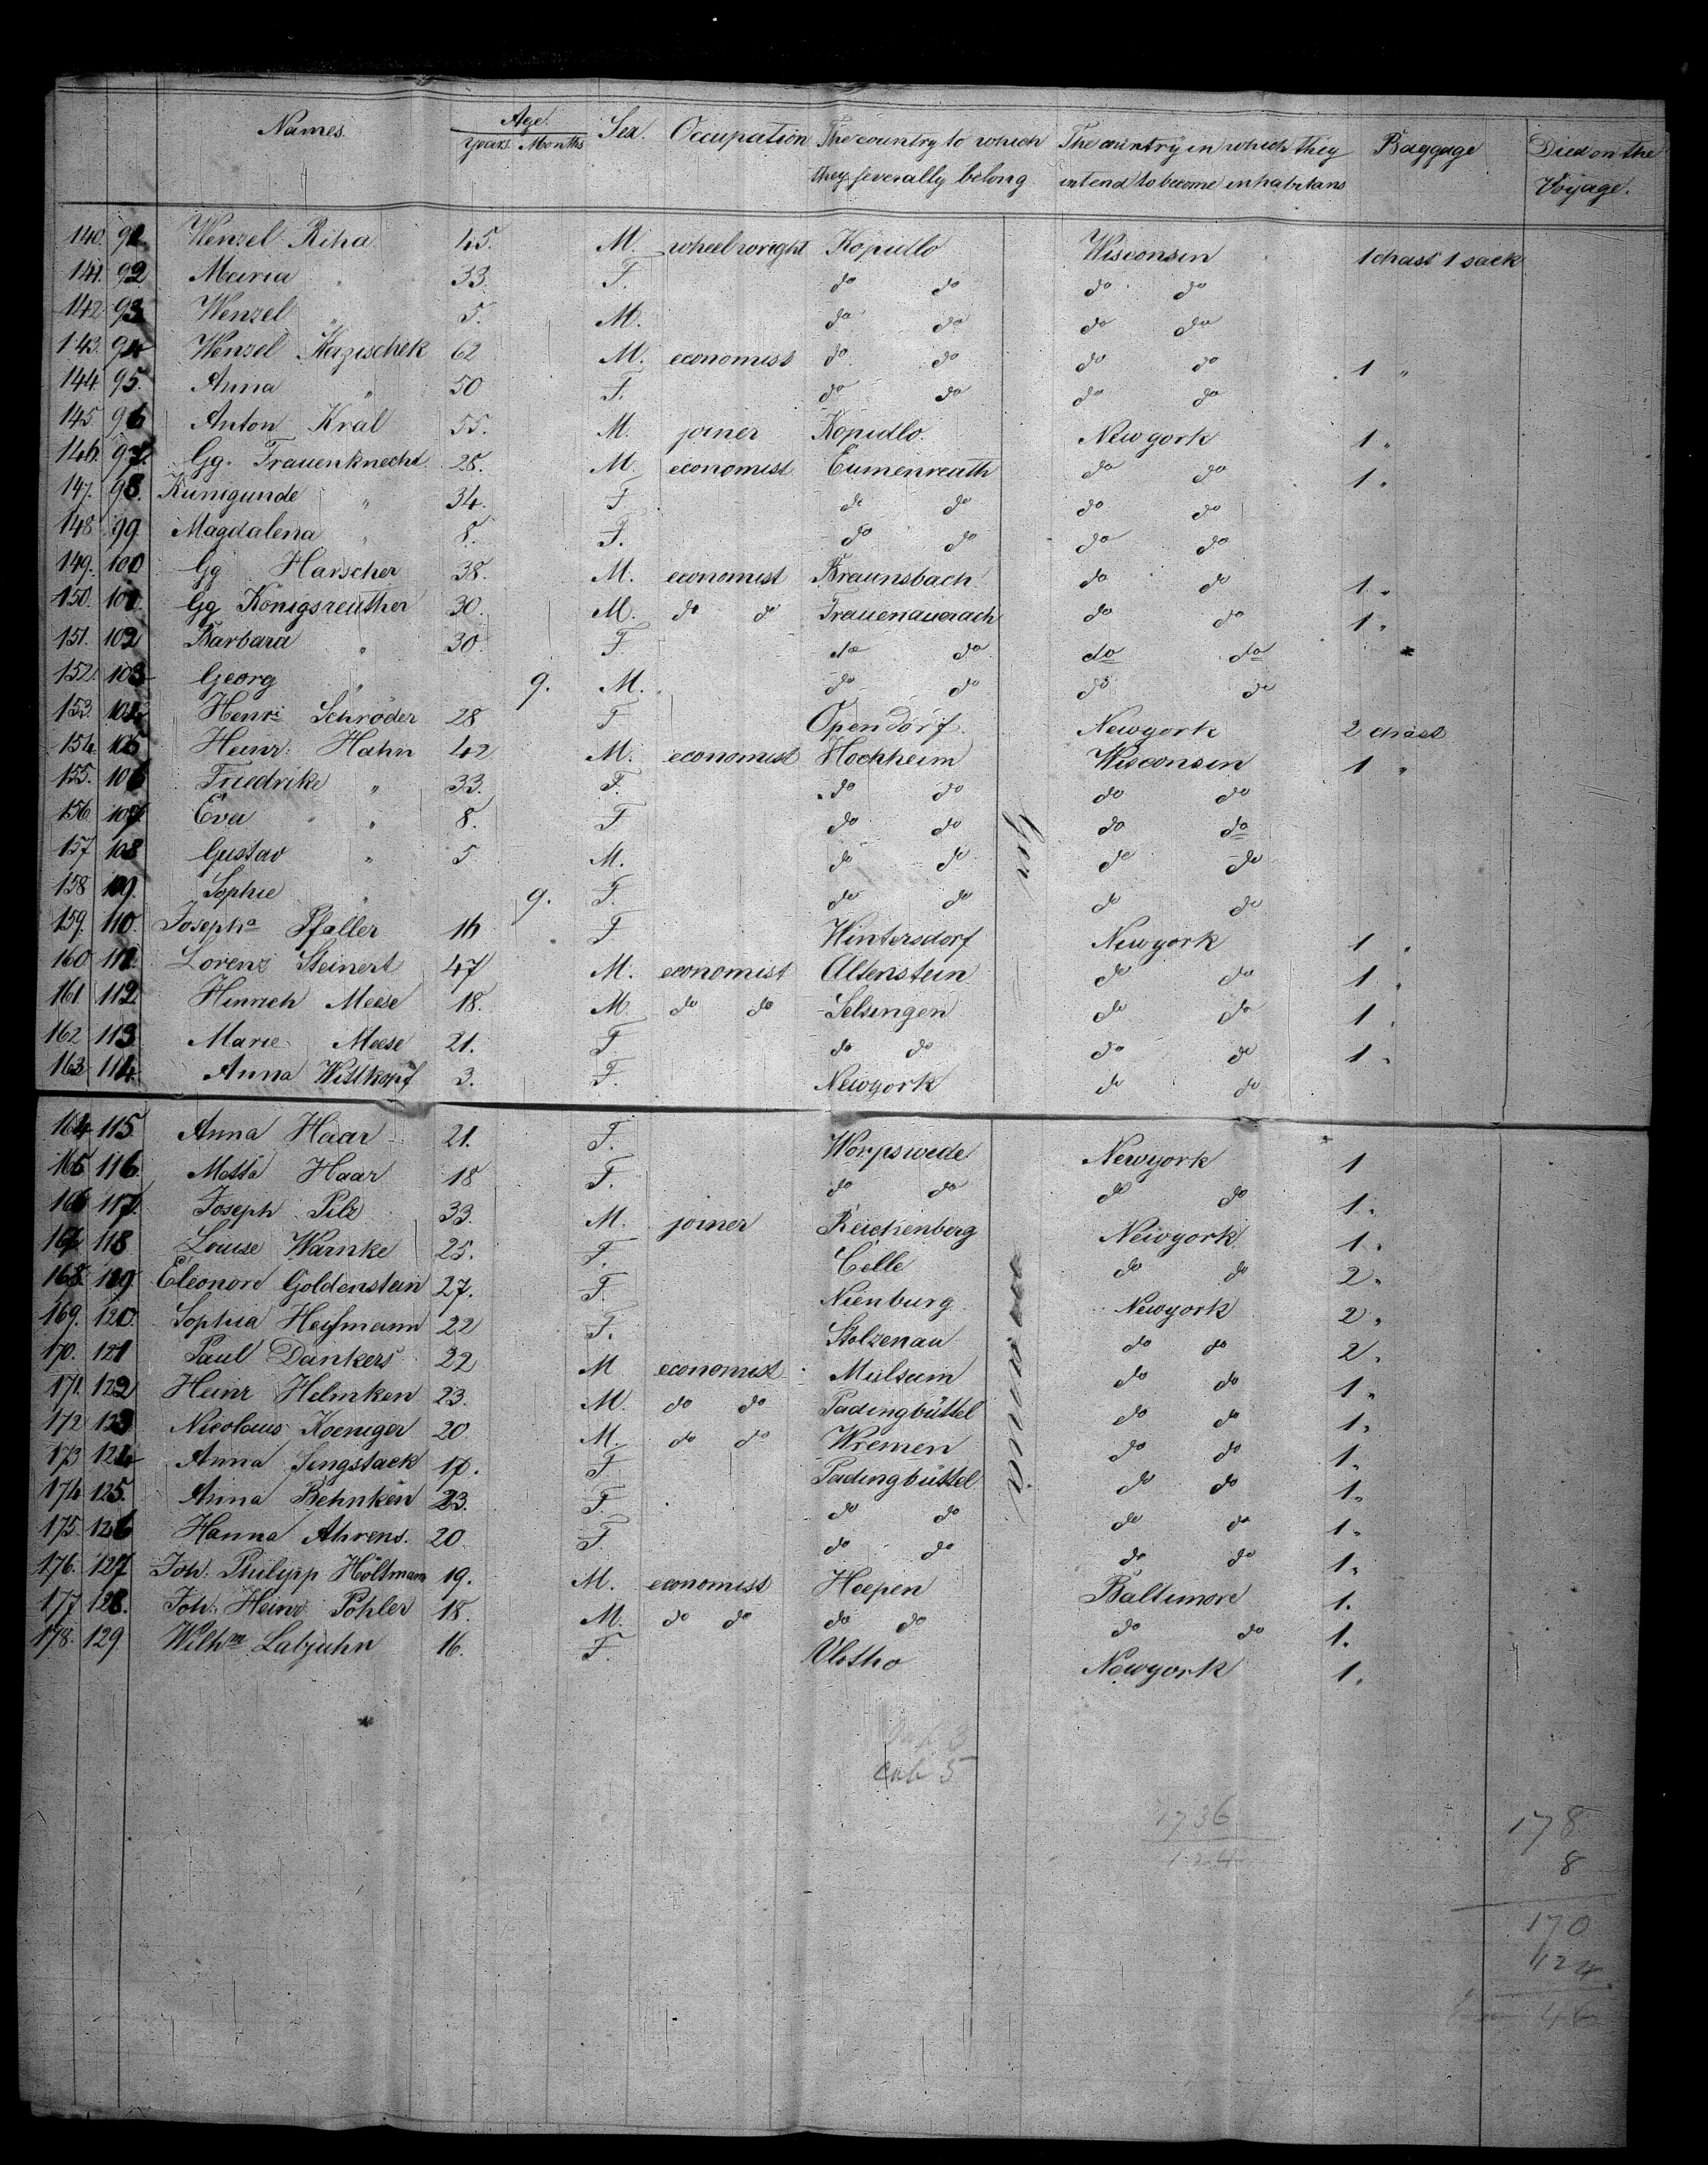 Names. Age. Sex. Occupation The country to which The country in which they Baggage Died on the
Years Months they severally belong intend to become inhabitans Voyage.
140. 91 Wenzel Riha 45. M. wheelwright Kopidlo Wisconsin 1 chast 1 sack
141. 92 Maria " 33. F. do do do do
142 93 Wenzel " 5. M. do do do do
143. 94 Wenzel Kazischek 62 M. economist do do do do 1 "
144. 95. Anna " 50 F. do do do do
145 96 Anton Kral 55. M. joiner Kopidlo. Newyork 1 "
146. 97. Gg. Frauenknecht 28. M. economist Eumenreuth do do 1 "
147. 98. Kunigunde " 34. F do do do do
148 99. Magdalena " 8. F. do do do do
149. 100 Gg Harscher 38. M. economist Braunsbach do do 1 "
150. 101. Gg Königsreuther 30. M. do do Frauenaurach do do 1 "
151. 102 Barbara " 30. F. do do do do
152. 103 Georg " 9. M. do do do do
153. 104 Henri Schröder 28 F Opendorf Newyork 2 chast
154. 105 Heinr. Hahn 42 M. economist Hochheim Wisconsin 1 "
155. 106 Friedrike " 33. F. do do do do
156. 107 Eva " 8. F do do do do
157 108 Gustav " 5 M. do do do do
158 109. Sophie " 9. F. do do do do
159. 110. Josepha Pfaller F Wintersdorf Newyork 1 "
160 111. Lorenz Steinert 47 M. economist Altenstein do do 1 "
161 112 Hinrich Meese 18. M. do do Selsingen do do 1 "
162 113. Marie Meese 21. F. do do do do 1 "
163 114. Anna Wittkopf 3. F. Newyork do do
164 115. Anna Haar 21. F. Worpswede Newyork 1
165 116. Metta Haar 18 F. do do do do 1 "
166 117. Joseph Pilz 33. M. joiner Reichenberg Newyork 1 "
167 118 Louise Warnke 25. F. Celle do do 2 "
168. 119. Eleonore Goldenstein 27. F. Nienburg Newyork 2 "
169. 120. Sophia Heysmann 22 F. Stolzenau do do 2 "
170. 121 Paul Dankers 22 M economist Mulsum do do 1 "
171. 122 Heinr Helmken 23. M. do do Padingbüttel do do 1 "
172 123 Nicolaus Koeniger 20. M. do do Wremen do do 1 "
173 124 Anna Sengstack 17. F Padingbüttel do do 1 "
174 125. Anna Behnken 23. F. do do do do 1 "
175. 126 Hanna Ahrens. 20. F. do do do do 1 "
176. 127 Joh. Philipp Höltmann 19. M. economist Heepen Baltimore 1.
177 128. Joh. Heinr Pohler 18. M. do do do do do do 1.
178. 129. Wilhne Labjuhn 16. F. Vlotho Newyork 1.
cab 5
1736
124
178
8
170
124